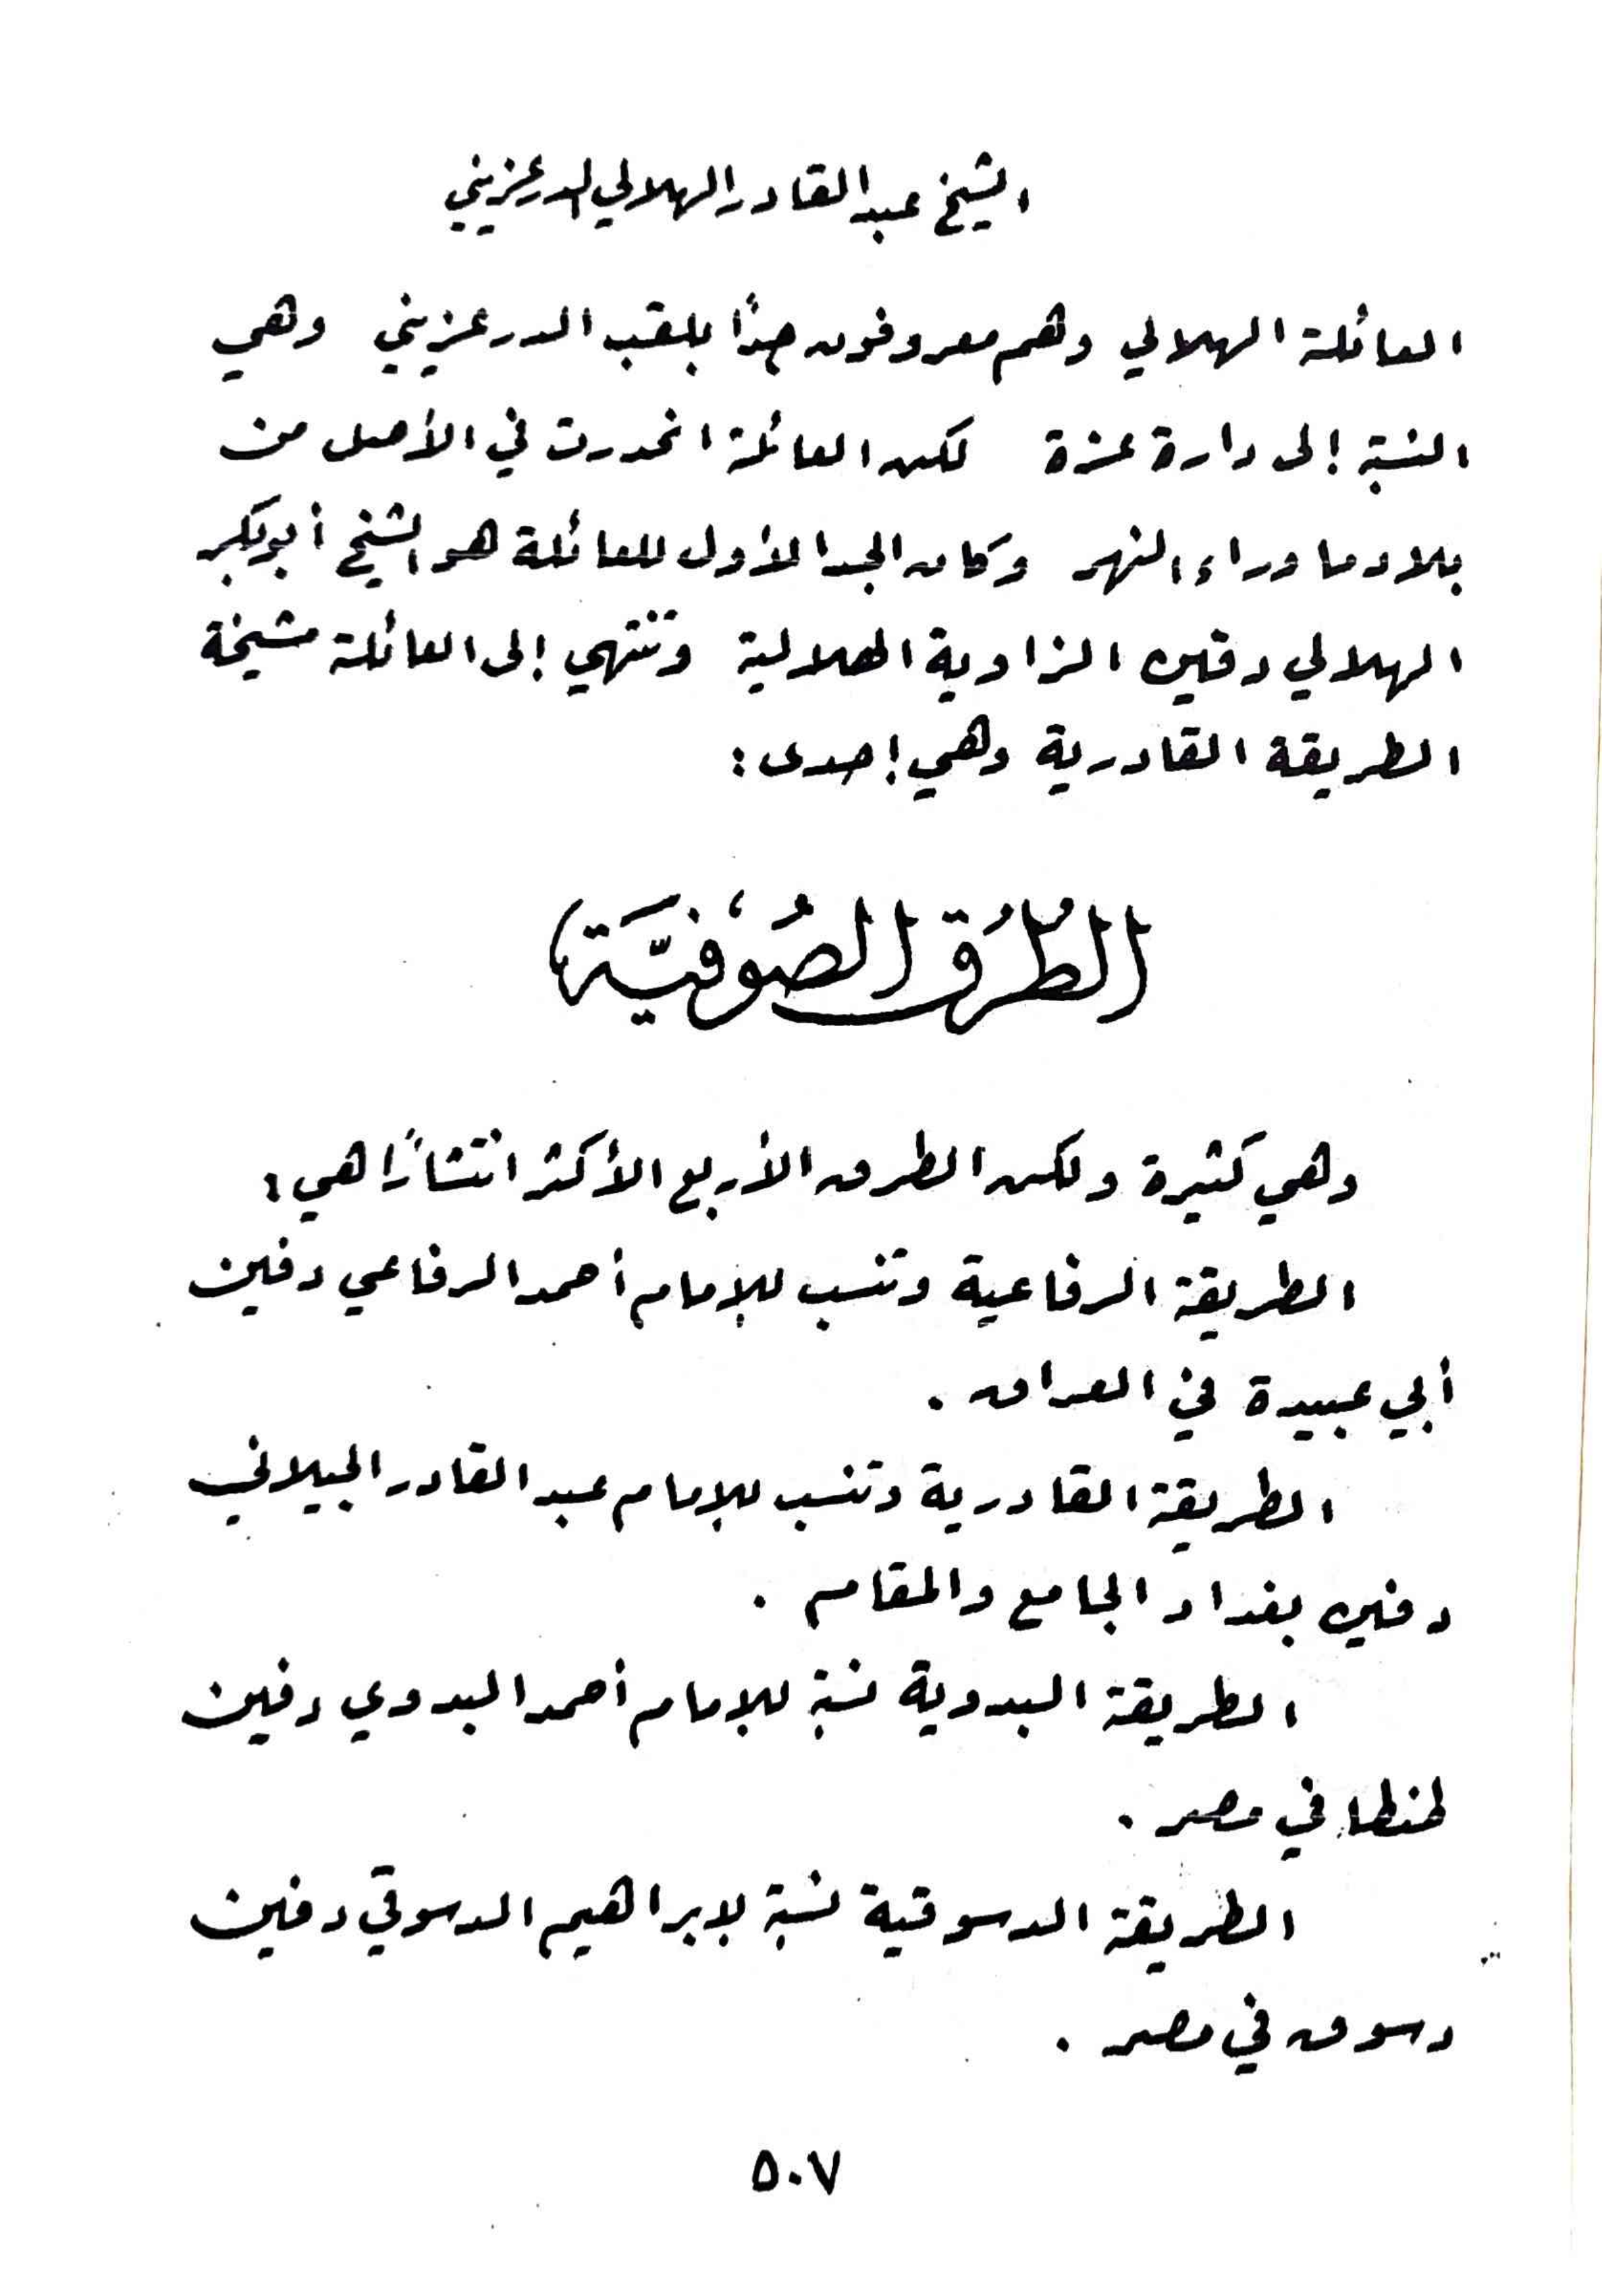 الشيخ عبد القادر الهلالي الدرعزيني
العائلة الهلالي وهم معروفون جدًا بلقب الدرعزيني وهي
النسبة إلى دارة عزة لكن العائلة انحدرت في الأصل من
بلاد ما وراء النهر وكان الجد الأول للعائلة هو الشيخ أبو بكر
الهلالي دفين الزاوية الهلالية وتنتهي إلى العائلة مشيخة
الطريقة القادرية وهي إحدى :
(الطُرُق الصُوفيَّة)
وهي كثيرة ولكن الطرق الأربع الأكثر انتشارًا هي :
الطريقة الرفاعية وتنسب للإمام أحمد الرفاعي دفين
أبي عبيدة في العراق .
الطريقة القادرية وتنسب للإمام عبد القادر الجيلاني
دفين بغداد الجامع والمقام .
الطريقة البدوية نسبة للإمام أحمد البدوي دفين
طنطا في مصر .
الطريقة الدسوقية نسبة لإبراهيم الدسوقي دفين
دسوق في مصر .
٥٠٧